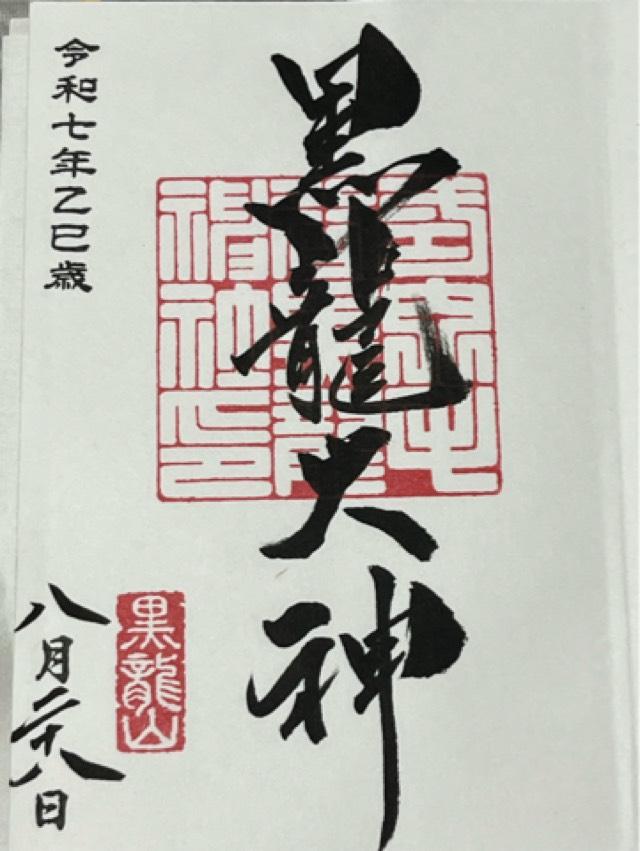 黒龍大神
黒龍山
令和七年乙巳歳
八月二十八日